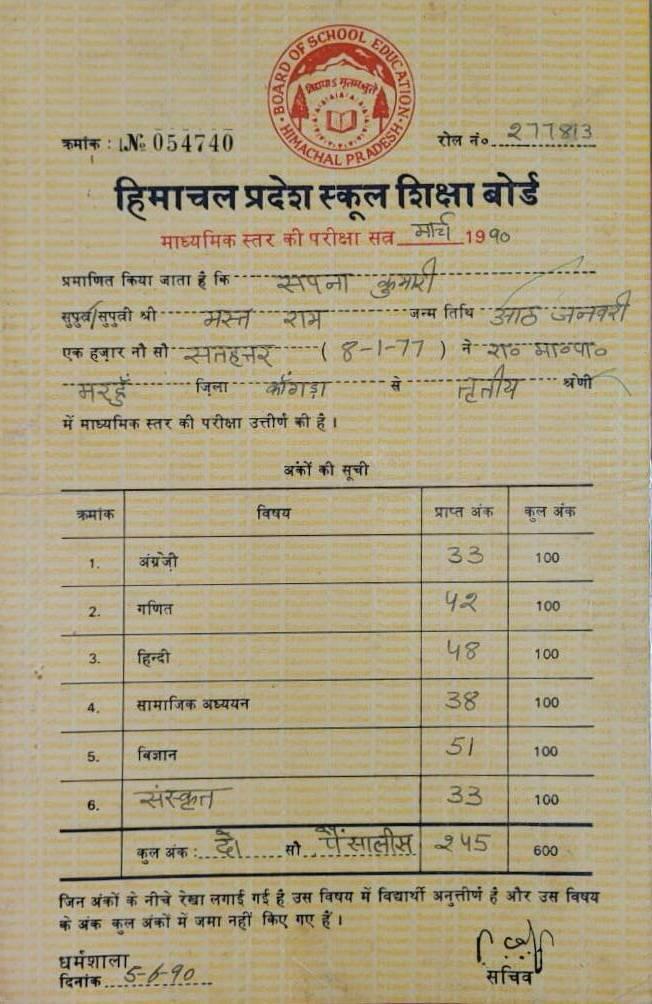 BOARD OF SCHOOL EDUCATION
HIMACHAL PRADESH
क्रमांक : 1.№ 054740 रोल नं० 277813
हिमाचल प्रदेश स्कूल शिक्षा बोर्ड
माध्यमिक स्तर की परीक्षा सत्र मार्च 1990
प्रमाणित किया जाता है कि सपना कुमारी
सुपुत्र/सुपुत्री श्री मस्त राम जन्म तिथि आठ जनवरी
एक हज़ार नौ सौ सतहत्तर (8-1-77) ने रा० मा० पा०
मरहूँ ज़िला काँगड़ा से तृतीय श्रेणी
में माध्यमिक स्तर की परीक्षा उत्तीर्ण की है।
अंकों की सूची
क्रमांक विषय प्राप्त अंक कुल अंक
1. अंग्रेज़ी 33 100
2. गणित 42 100
3. हिन्दी 48 100
4. सामाजिक अध्ययन 38 100
5. विज्ञान 51 100
6. संस्कृत 33 100
कुल अंक : दो सौ पैंतालीस 245 600
जिन अंकों के नीचे रेखा लगाई गई है उस विषय में विद्यार्थी अनुत्तीर्ण है और उस विषय
के अंक कुल अंकों में जमा नहीं किए गए हैं।
धर्मशाला
दिनांक 5-6-90 सचिव